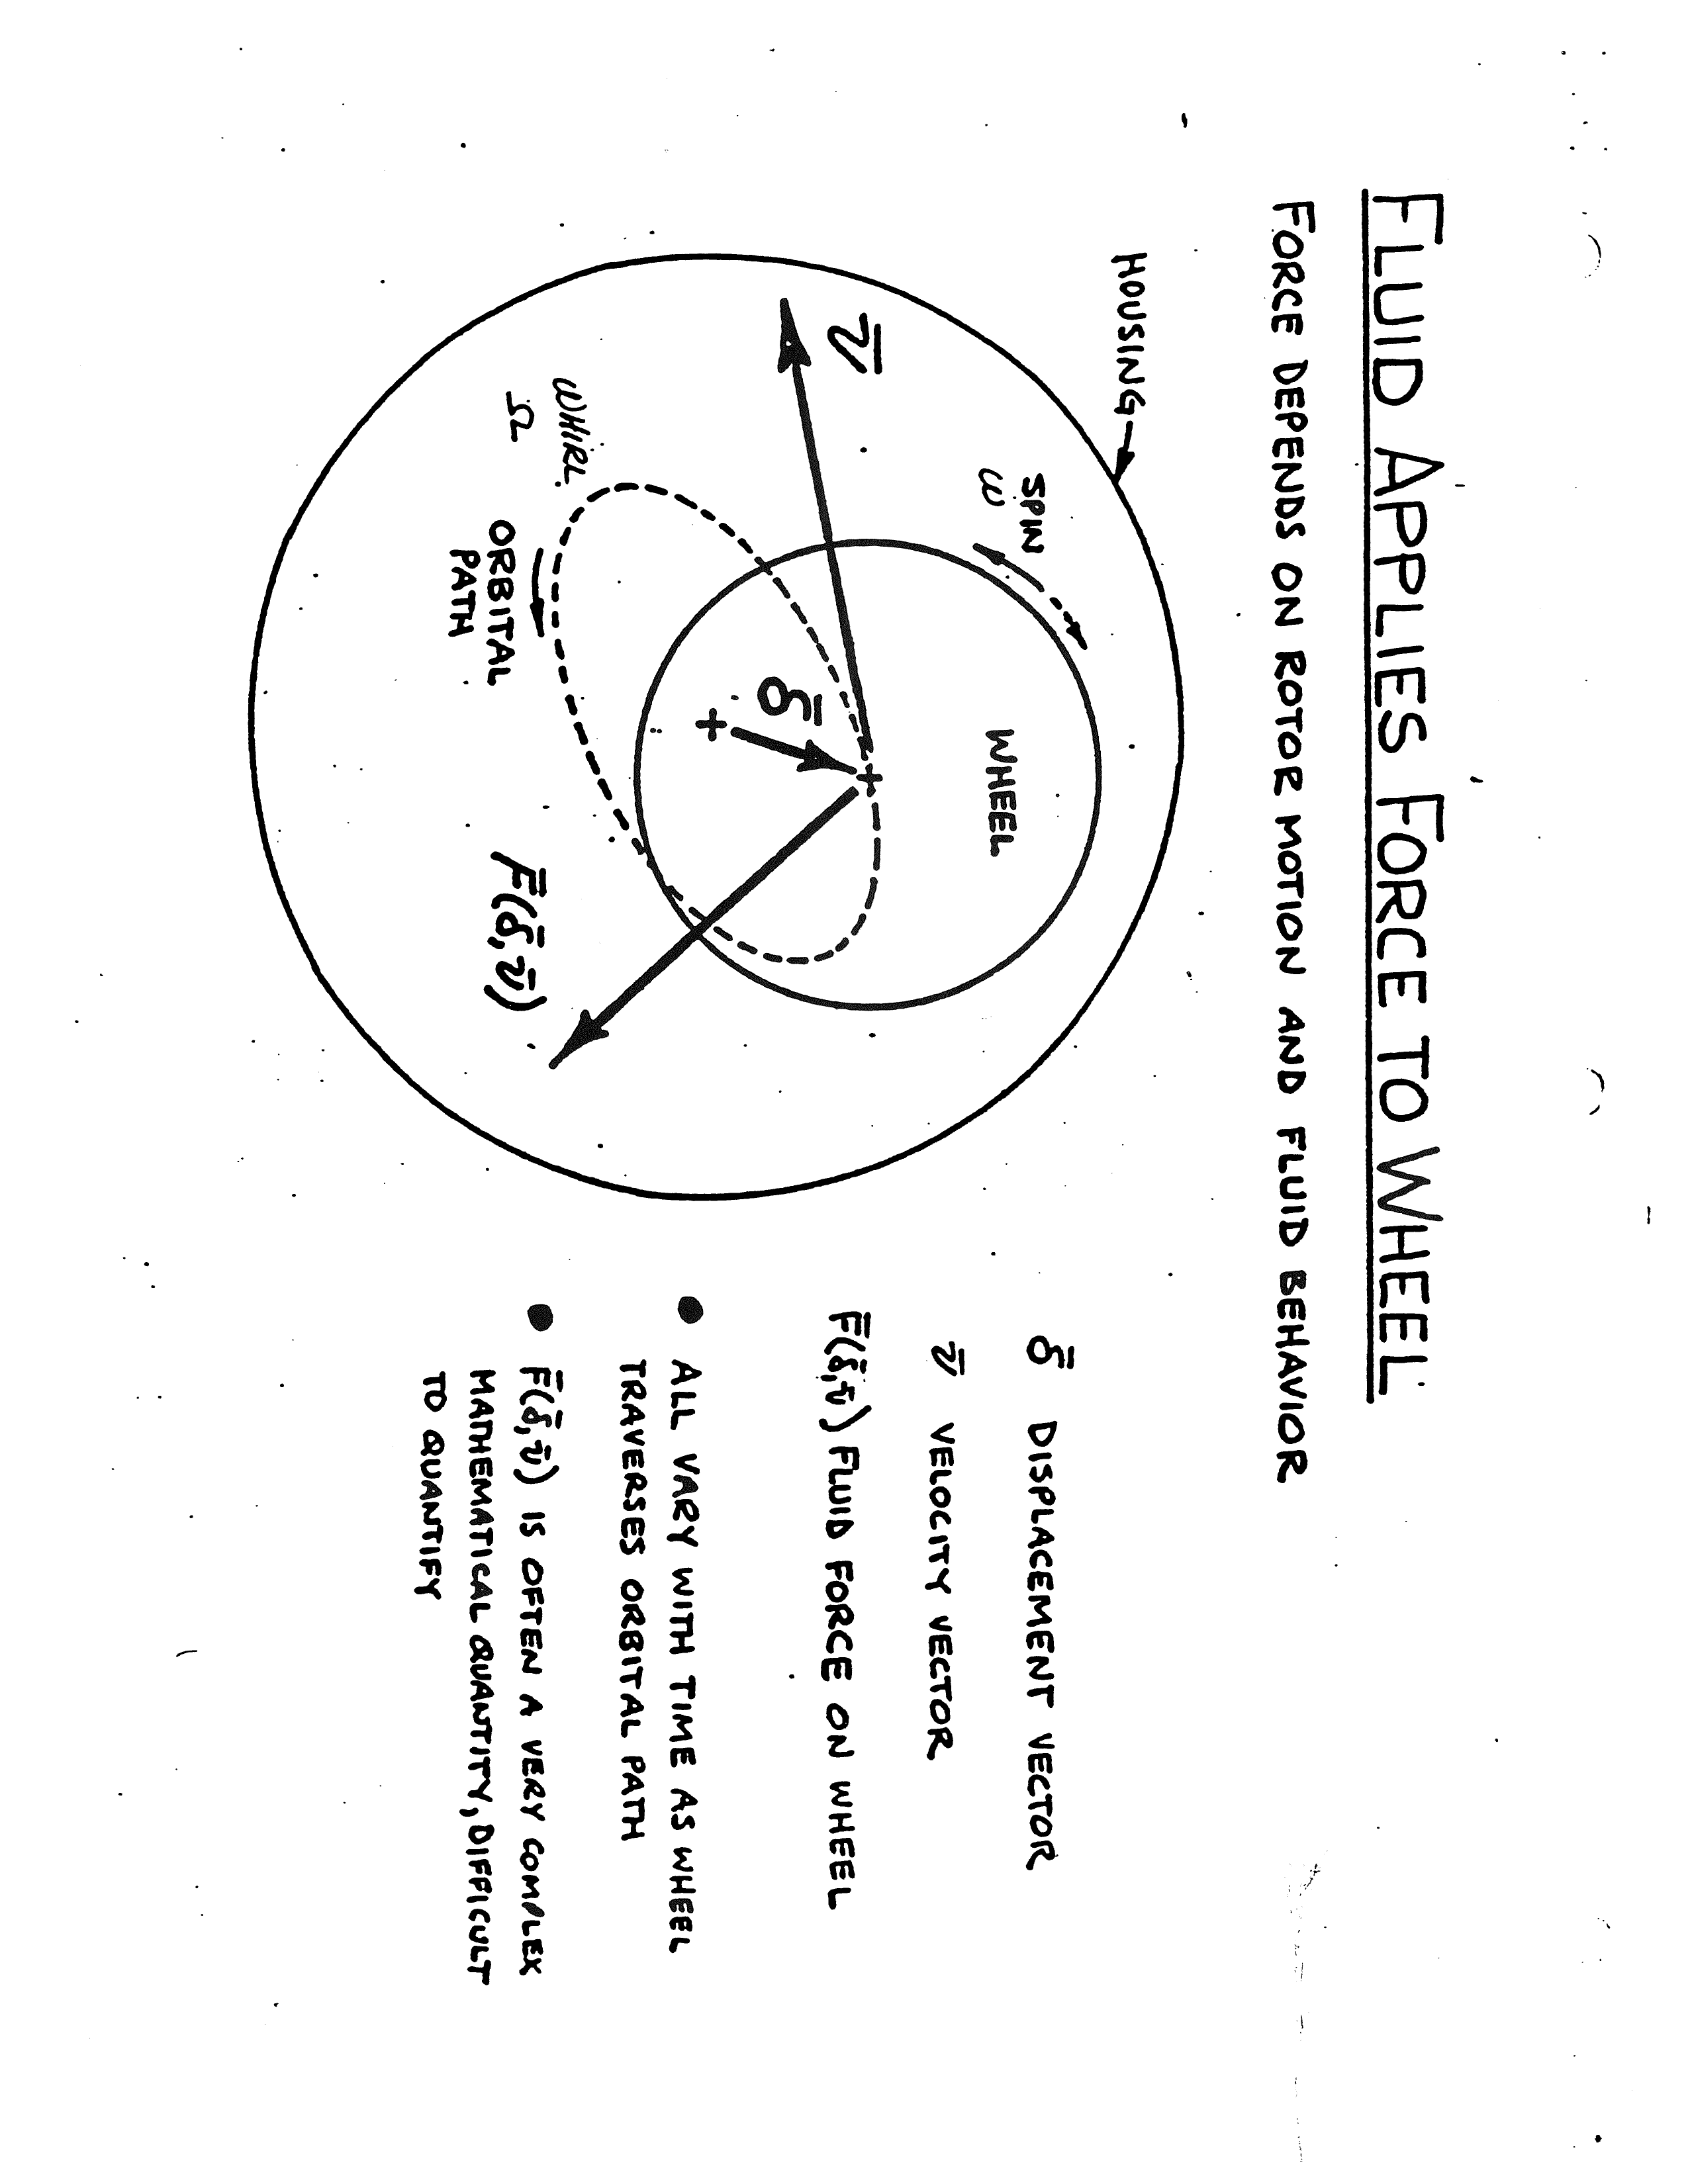 FLUID APPLIES FORCE TO WHEEL
FORCE DEPENDS ON ROTOR MOTION AND FLUID BEHAVIOR
HOUSING
SPIN
ω
WHEEL
v̄
δ̄
WHIRL
Ω
ORBITAL
PATH
F̄(δ̄,v̄)
δ̄ DISPLACEMENT VECTOR
v̄ VELOCITY VECTOR
F̄(δ̄,v̄) FLUID FORCE ON WHEEL
● ALL VARY WITH TIME AS WHEEL
TRAVERSES ORBITAL PATH
● F̄(δ̄,v̄) IS OFTEN A VERY COMPLEX
MATHEMATICAL QUANTITY, DIFFICULT
TO QUANTIFY